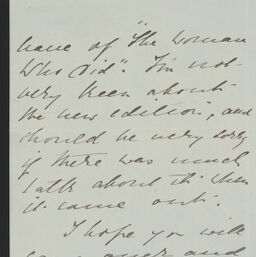 have of "The Woman
Who Did". I'm not
very keen about
the new edition, and
should be very sorry
if there was much
talk about it when
it came out.
I hope you will
and